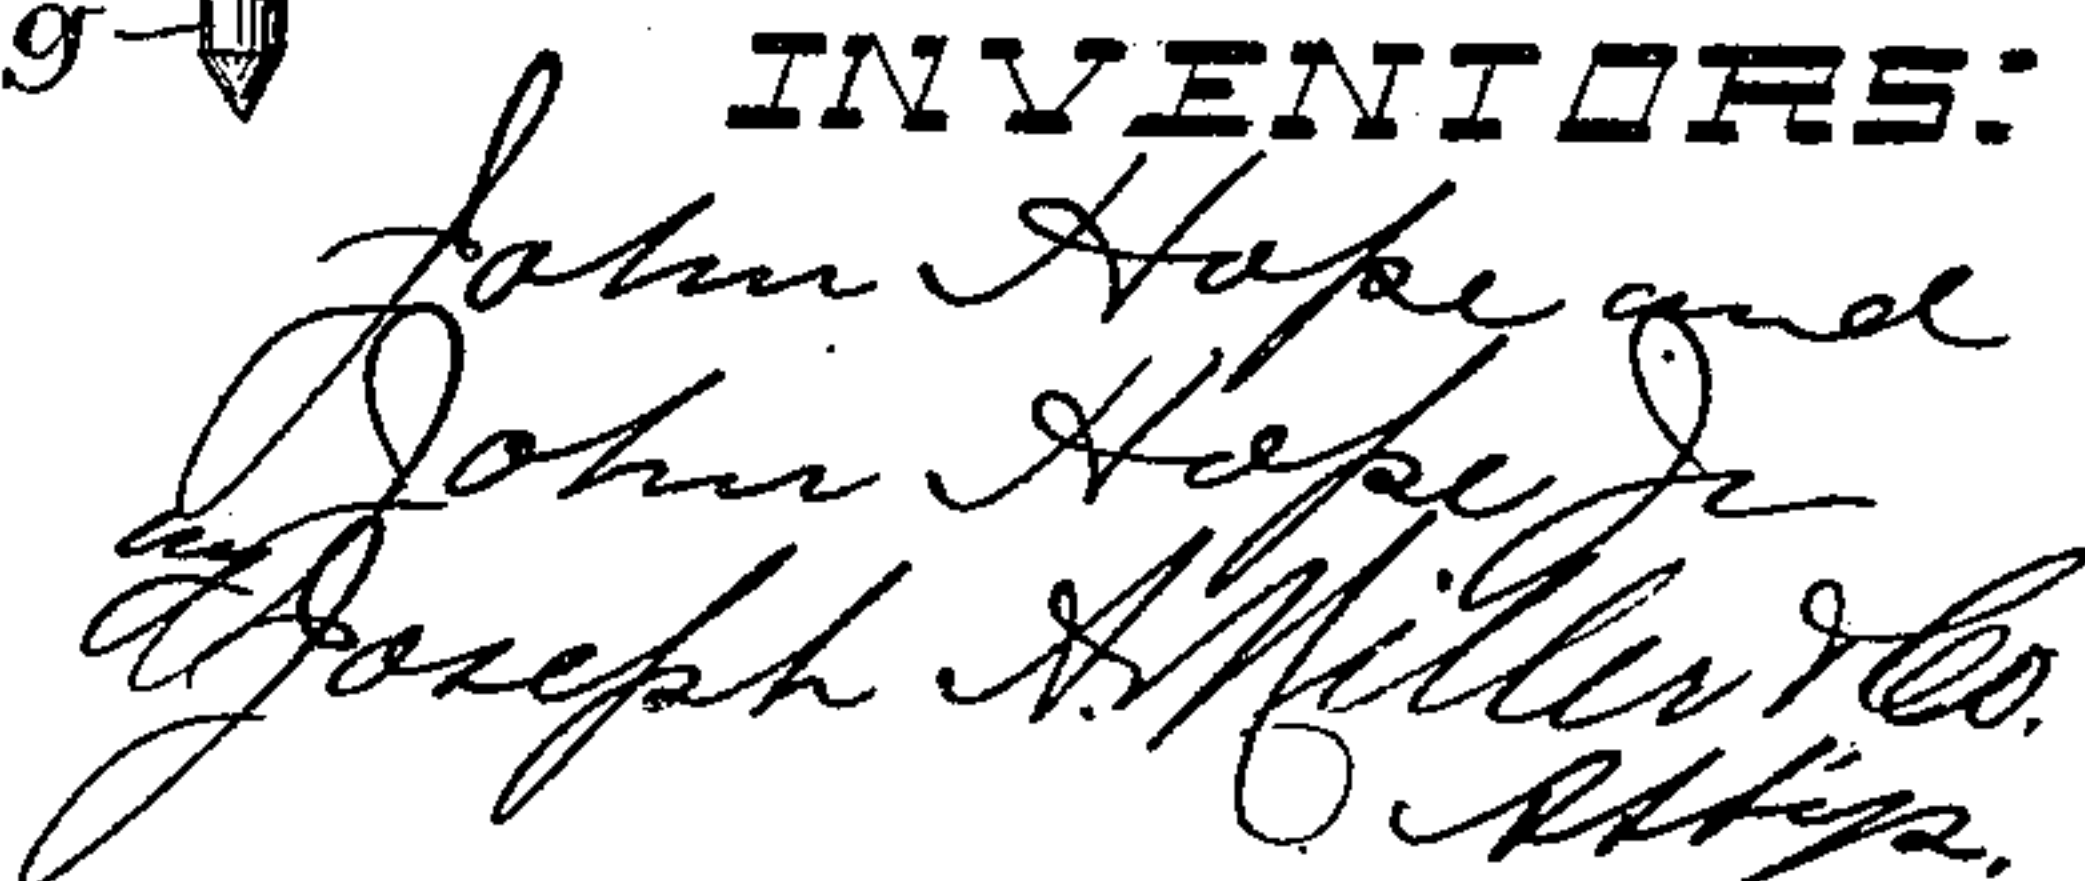 g
INVENTORS:
John Hope and
John Hope Jr
by
Joseph A. Miller & Co.
Att'ys.